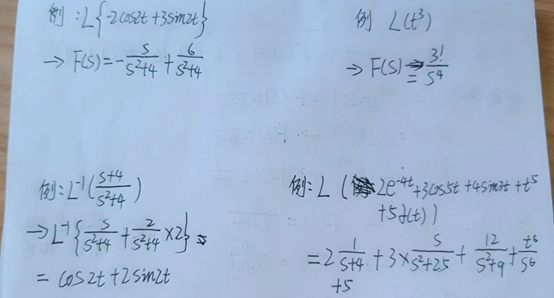 例:L{-2cos2t+3sin2t}
→ F(S)=-\frac{S}{S²+4}+\frac{6}{S²+4}
例 L(t³)
→ F(S)=\frac{3!}{S⁴}
例:L⁻¹(\frac{S+4}{S²+4})
→L⁻¹{\frac{S}{S²+4}+\frac{2}{S²+4}×2}=
= cos2t+2sin2t
例:L (2e^{-4t}+3cos5t+4sin3t+t⁵
+5δ(t))
=2\frac{1}{S+4}+3×\frac{S}{S²+25}+\frac{12}{S²+9}+\frac{t⁵}{S⁶}
+5